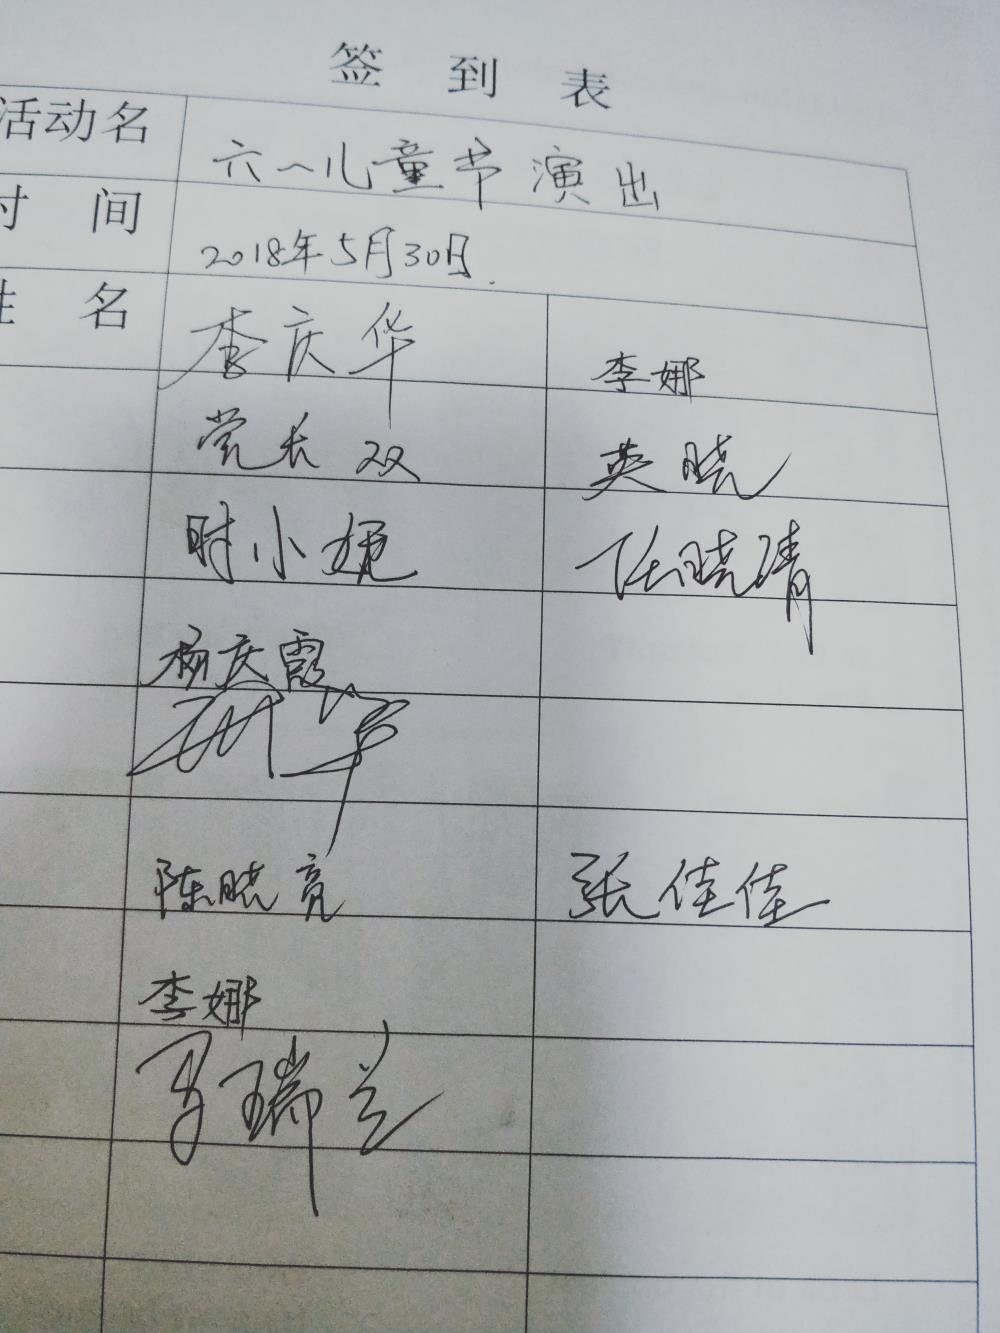 签到表
活动名 六一儿童节演出
时间 2018年5月30日.
姓名 李庆华 李娜
党长双 英晓
时小娓 任晓清
杨庆霞
陈晓亮 张佳佳
李娜
马瑞兰